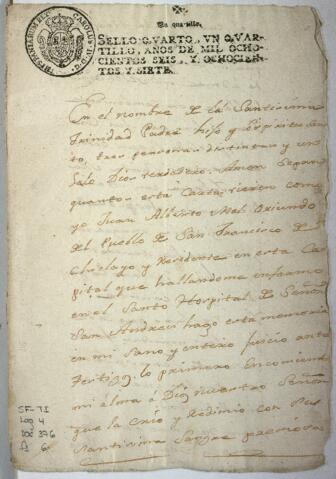 Un quartillo.
SELLO QVARTO, VN QVAR-
TILLO, AÑOS DE MIL OCHO-
CIENTOS SEIS, Y OCHOCIEN-
TOS Y SIETE.
HISPANIARUM REX CAROLUS IV D G
En el nombre de la Santisima
Trinidad Padre hijo y Espiritu San
to, tres personas distintas y un
Solo Dios verdadero Amen Sepan
quantos esta Carta vieren como
yo Juan Alberto Oriundo
del Pueblo de San Francisco de
Chiclayo y Residente en esta Ca
pital que hallandome enfermo
en el Santo Hospital de Señor
San Andres hago esta memoria
en mi Sano y entero juicio ante
Testigos lo primero Encomiendo
mi alma a Dios nuestro Señor
que la crio y redimio con su
Santisima Sangre preciosa
SF-TI
Leg 4
Doc 376
f 6